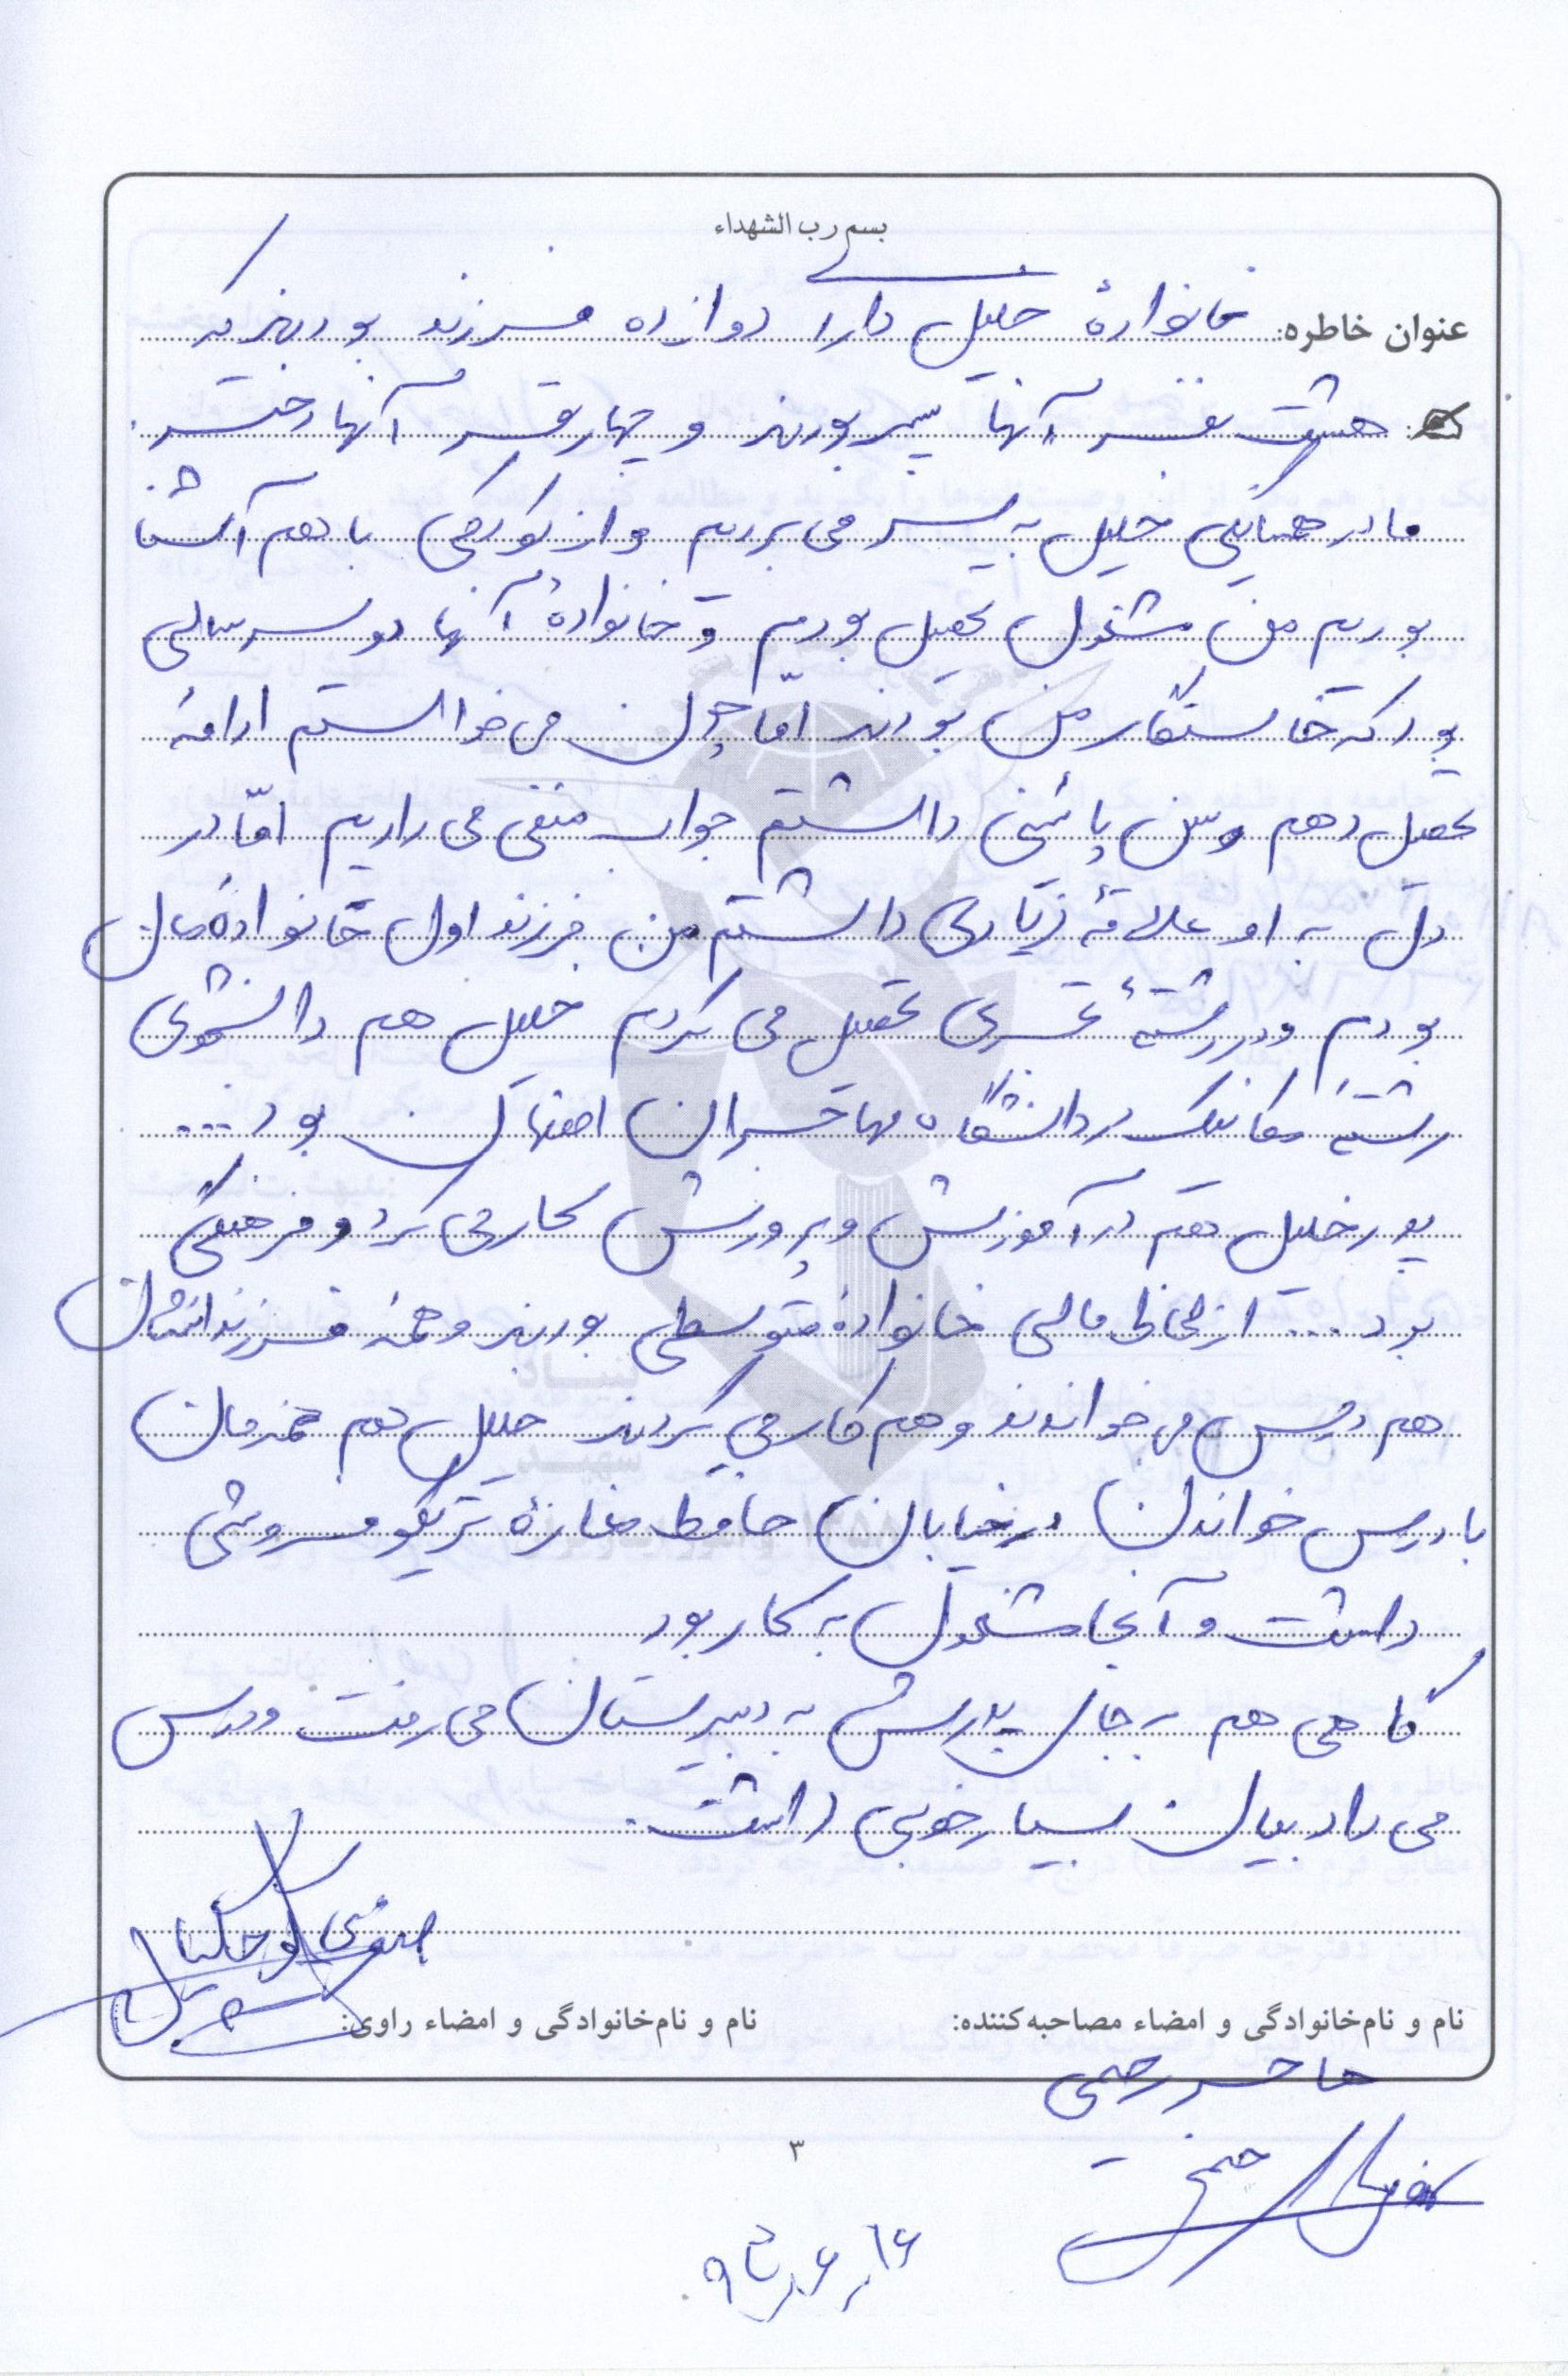 بسم رب الشهداء
عنوان خاطره: خانوادهٔ خلیل دارا دوازده فرزند بودند که
هشت نفر آنها پسر بودند و چهار نفر آنها دختر.
ما در همسایگی خلیل به سر می بردیم و از کودکی با هم آشنا
بودیم من مشغول تحصیل بودم و خانوادهٔ آنها دو سه سالی
بود که خاستگار من بودند امّا چون می خواستم ادامهٔ
تحصیل دهم و سن پائینی داشتم جواب منفی می دادیم امّا در
دل به او علاقهٔ زیادی داشتم من فرزند اول خانواده مان
بودم و در رشتهٔ تجربی تحصیل می کردم خلیل هم دانشجوی
رشتهٔ مکانیک در دانشگاه مهاجران اصفهان بود ...
پدر خلیل هم در آموزش و پرورش کار می کرد و فرهنگی
بود .... از لحاظ مالی خانوادهٔ متوسطی بودند و همه فرزندانشان
هم درس می خواندند و هم کار می کردند خلیل هم همزمان
با درس خواندن در خیابان حافظ مغازهٔ تریکو فروشی
داشت و آنجا مشغول به کار بود
گاهی هم به جای پدرش به دبیرستان می رفت و درس
می داد بیان بسیار خوبی داشت.
نام و نام‌خانوادگی و امضاء مصاحبه‌کننده:
نام و نام‌خانوادگی و امضاء راوی:
هاجر رحیمی
۳
۹۵/۶/۱۶